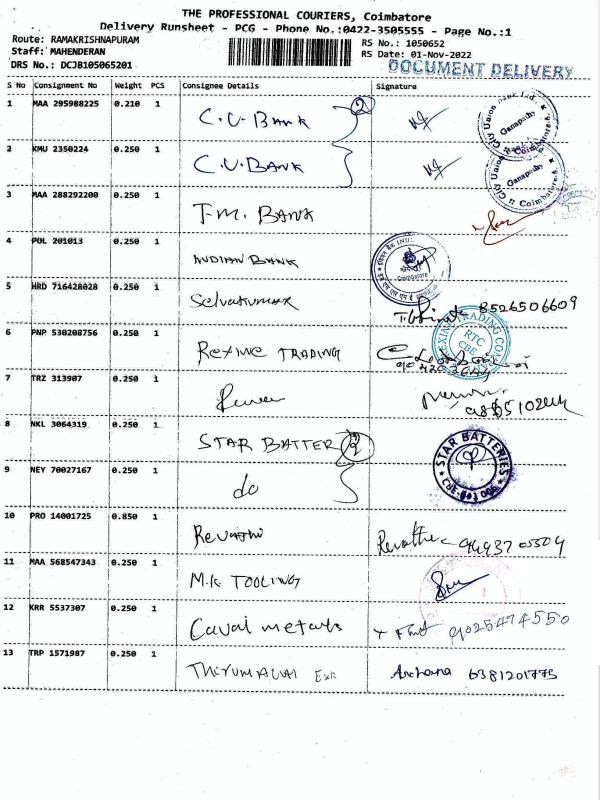 THE PROFESSIONAL COURIERS, Coimbatore
Delivery Runsheet - PCG - Phone No.:0422-3505555 - Page No.:1
Route: RAMAKRISHNAPURAM
RS No.: 1050652
Staff: MAHENDERAN
RS Date: 01-Nov-2022
DRS No.: DCJB105065201
DOCUMENT DELIVERY
S No Consignment No Weight PCS Consignee Details Signature
1 MAA 295988225 0.210 1 C.U. BANK 2
City Union Bank Ltd. Ganapathy Coimbatore
2 KMU 2350224 0.250 1 C.U. BANK
City Union Ganapathy Coimbatore
3 MAA 288292200 0.250 1 T.M. BANK
4 POL 201013 0.250 1 INDIAN BANK
Coimbatore
5 HRD 716428028 0.250 1 Selvakumar 8526506609
6 PNP 530208756 0.250 1 Rexine TRADING
REXINE TRADING RTC CBE
7 TRZ 313907 0.250 1
8 NKL 3064319 0.250 1 STAR BATTER 2
STAR BATTERIES
9 NEY 70027167 0.250 1 do
10 PRO 14001725 0.850 1 Revathi Revathi
11 MAA 568547343 0.250 1 M.K TOOLING
12 KRR 5537307 0.250 1 Caval metals 9025474550
13 TRP 1571987 0.250 1 THIRUMALAI Archana 6381201775